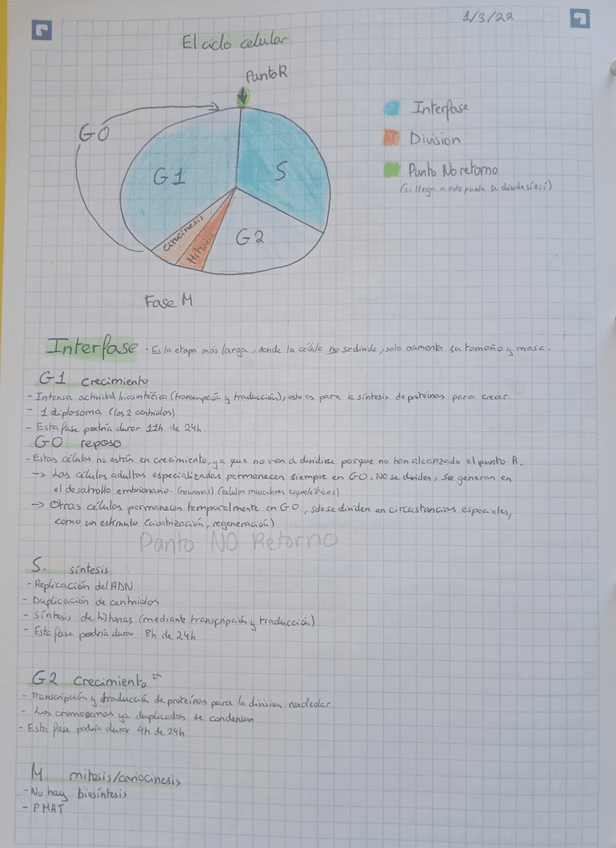 1/3/22
El ciclo celular
Punto R
G0
G1
S
G2
Citocinesis
Mitosis
Fase M
Interfase
Division
Punto No retorno
(si llega a este punto se divide sí o sí)
Interfase - Es la etapa más larga, donde la célula no se divide, solo aumenta su tamaño y masa.
G1 crecimiento
- Intensa actividad biosintética (transcripción y traducción), esto es para la síntesis de proteínas para crecer
- 1 diplosoma (los 2 centriolos)
- Esta fase podría durar 11h de 24h
G0 reposo
- Estas células no están en crecimiento, ya que no van a dividirse porque no han alcanzado el punto R.
→ Las células adultas especializadas permanecen siempre en G0. NO se dividen, se generan en
el desarrollo embrionario. (neuronas) (células musculares esqueléticas)
→ Otras células permanecen temporalmente en G0, solo se dividen en circustancias especiales,
como un estímulo (cicatrización, regeneración)
Punto NO Retorno
S. síntesis
- Replicación del ADN
- Duplicación de centriolos
- Síntesis de histonas (mediante transcripción y traducción)
- Esta fase podría durar 8h de 24h
G2 crecimiento 2º
- Transcripción y traducción de proteínas para la división nuclear
- Los cromosomas ya duplicados se condensan
- Esta fase podría durar 4h de 24h
M. mitosis/cariocinesis
- No hay biosíntesis
- PMAT